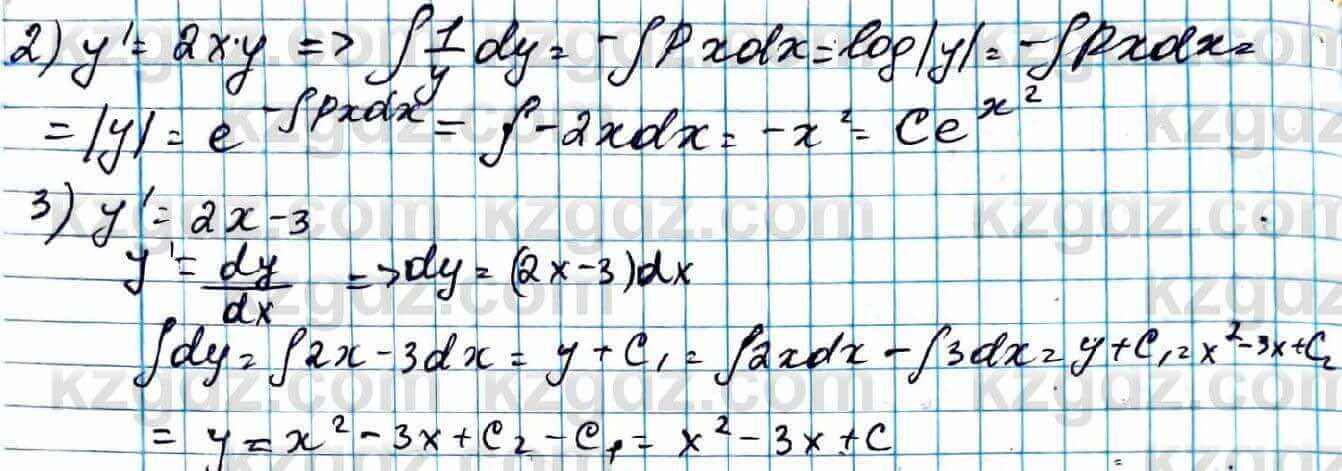 2) y' = 2x·y => ∫ 1/y dy = -∫ p x dx = log|y| = -∫ p x dx =
= |y| = e^(-∫ p x dx) = ∫ -2x dx = -x² = Ce^(x²)
3) y' = 2x - 3
y' = dy/dx => dy = (2x - 3)dx
∫ dy = ∫ 2x - 3dx = y + C₁ = ∫ 2x dx - ∫ 3dx = y + C₁ = x² - 3x + C₂
= y = x² - 3x + C₂ - C₁ = x² - 3x + C
kzgdz.com